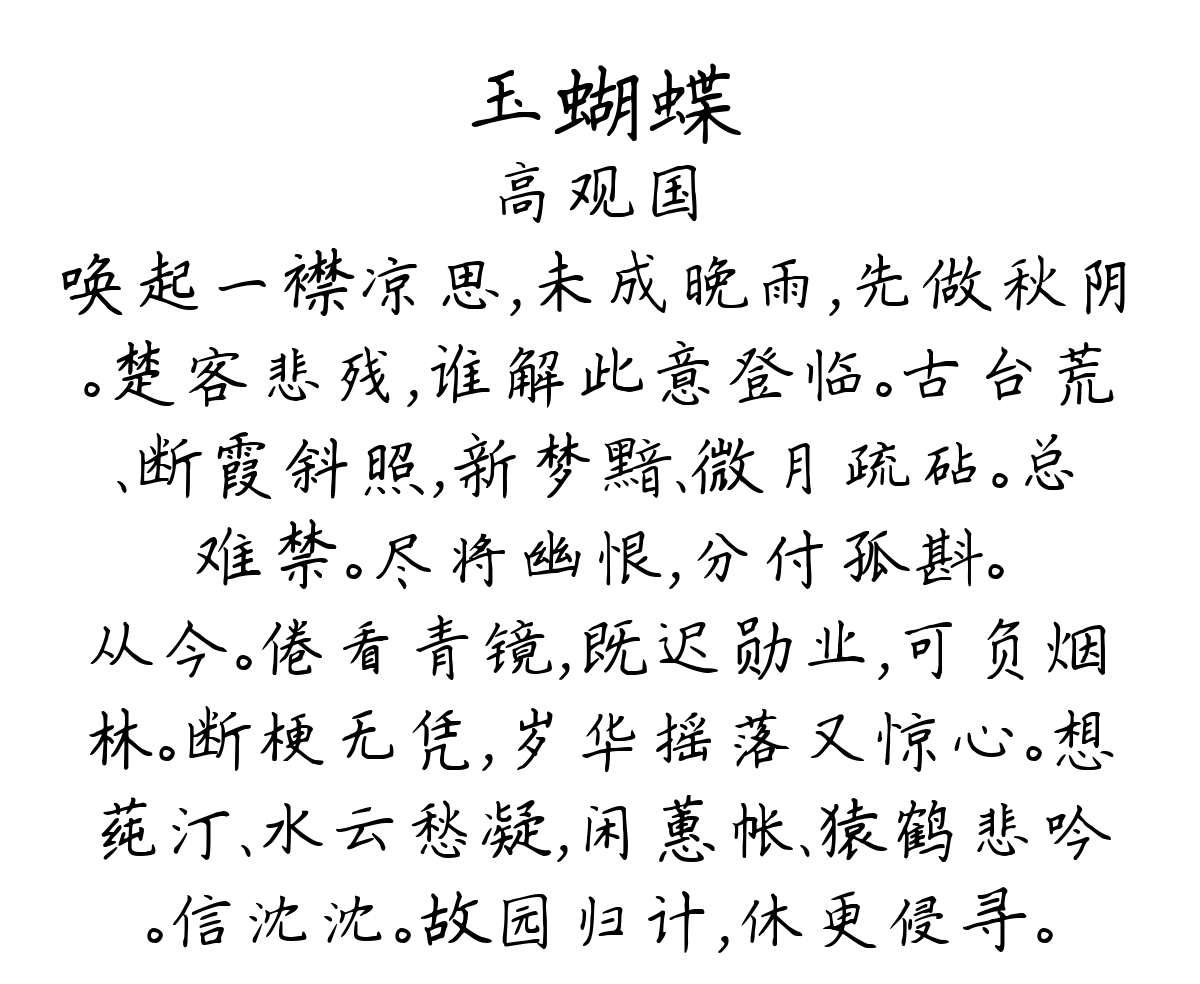 玉蝴蝶
高观国
唤起一襟凉思,未成晚雨,先做秋阴
。楚客悲残,谁解此意登临。古台荒
、断霞斜照,新梦黯、微月疏砧。总
难禁。尽将幽恨,分付孤斟。
从今。倦看青镜,既迟勋业,可负烟
林。断梗无凭,岁华摇落又惊心。想
莼汀、水云愁凝,闲蕙帐、猿鹤悲吟
。信沈沈。故园归计,休更侵寻。